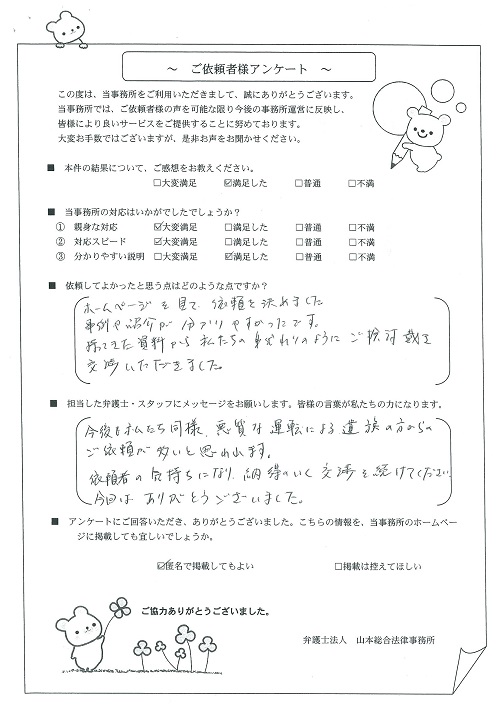 ～ ご依頼者様アンケート ～
この度は、当事務所をご利用いただきまして、誠にありがとうございます。
当事務所では、ご依頼者様の声を可能な限り今後の事務所運営に反映し、
皆様により良いサービスをご提供することに努めております。
大変お手数ではございますが、是非お声をお聞かせください。
■ 本件の結果について、ご感想をお教えください。
□大変満足 ☑満足した □普通 □不満
■ 当事務所の対応はいかがでしたでしょうか？
① 親身な対応 ☑大変満足 □満足した □普通 □不満
② 対応スピード ☑大変満足 □満足した □普通 □不満
③ 分かりやすい説明 □大変満足 ☑満足した □普通 □不満
■ 依頼してよかったと思う点はどのような点ですか？
ホームページを見て、依頼を決めました
事例や紹介が分かりやすかったです。
持てきた資料から私たちの のように ご検討 を
交渉いただきました。
■ 担当した弁護士・スタッフにメッセージをお願いします。皆様の言葉が私たちの力になります。
今後も私たち同様、悪質な運転による遺族の方からの
ご依頼が多いと思われます。
依頼者の気持ちになり、納得のいく交渉を続けてください
今回はありがとうございました。
■ アンケートにご回答いただき、ありがとうございました。こちらの情報を、当事務所のホームペー
ジに掲載しても宜しいでしょうか。
☑匿名で掲載してもよい □掲載は控えてほしい
ご協力ありがとうございました。
弁護士法人 山本総合法律事務所